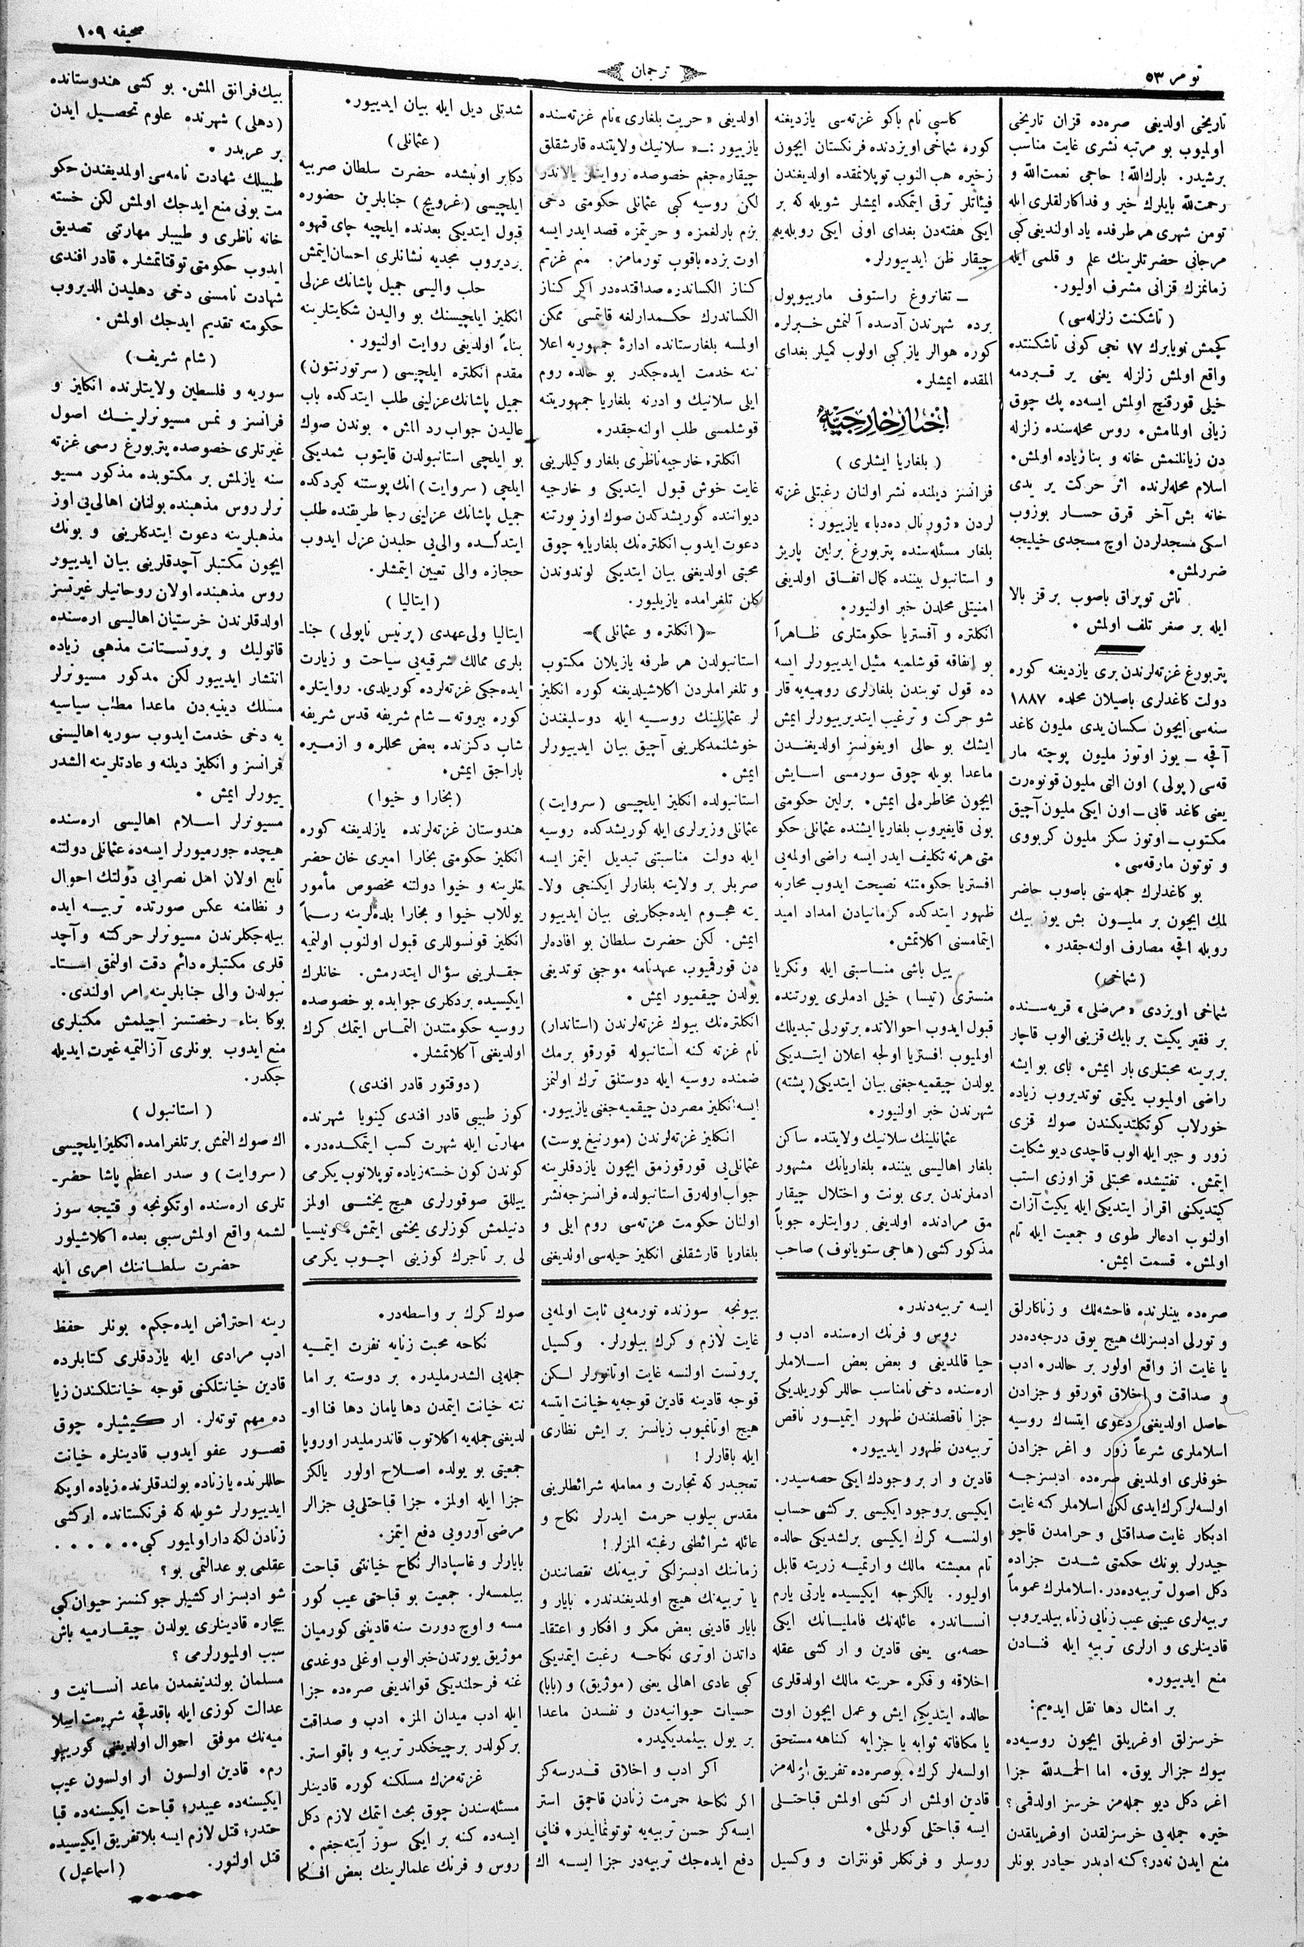 نومر ٥٣
ترجمان
صحيفه ١٠٩
تاريخی اولديغی صره‌ده قزان تاريخی
اولميوب بو مرتبه نشری غايت مناسب
برشيدر. بارك‌الله! حاجی نعمت‌الله و
رحمت‌الله بايلرك خير و فداكارلقلری ايله
تومن شهری هر طرفده ياد اولنديغی كبی
مرجانی حضرتلرينك علم و قلمی ايله
زمانمزك قزانی مشرف اوليور.
(تاشكنت زلزله‌سی)
كچمش نويابرك ١٧ نجی كونی تاشكنتده
واقع اولمش زلزله يعنی ير قبردمه
خيلی قورقنچ اولمش ايسه‌ده پك چوق
زيانی اولمامش. روس محله‌سنده زلزله
دن زيانلنمش خانه و بنا زياده اولمش.
اسلام محله‌لرنده اثر حركت ير يدی
خانه بش آخر قرق حسار بوزوب
اسكی مسجدلردن اوچ مسجدی خيليجه
ضررلمش.
تاش توپراق باصوب برقز بالا
ايله بر صغر تلف اولمش.
پتربورغ غزته‌لرندن بری يازديغنه كوره
دولت كاغدلری باصيلان محلده ١٨٨٧
سنه‌سی ايچون سكسان يدی مليون كاغد
آقچه ــ يوز اوتوز مليون پوچته مار
قه‌سی (پولی) اون التی مليون قونوه‌رت
يعنی كاغد قابی ــ اون ايكی مليون آچيق
مكتوب ــ اوتوز سكز مليون كربووی
و توتون مارقه‌سی.
بو كاغدلرك جمله‌سی باصوب حاضر
لمك ايچون بر مليون بش يوز بيك
روبله اقچه مصارف اولنه‌جقدر.
(شماخی)
شماخی اويزدی «مرضلی» قريه‌سنده
بر فقير يكيت بر بايك قزينی الوب قاچار
بربرينه محبتلری بار ايمش. بای بو ايشه
راضی اولميوب يكيتی توتديروب زياده
خورلاب كوتكلتديكندن صوك قزی
زور و جبر ايله الوب قاچدی ديو شكايت
ايتمش. تفتيشده محبتلی قز اوزی استب
كيتديكنی اقرار ايتديكی ايله يكيت آزات
اولنوب ادعالر طوی و جمعيت ايله تام
اولمش. قسمت ايمش.
كاسپی نام باكو غزته‌سی يازديغنه
كوره شماخی اويزدنده فرنكستان ايچون
زخيره هب النوب توپلانمقده اولديغندن
فيئاتلر ترقی ايتمكده ايمشلر شويله كه بر
ايكی هفته‌دن بغدای اونی ايكی روبله‌يه
چيقار ظن ايدييورلر.
ــ تغانروغ راستوف ماريبوپول
برده شهرندن آدسده آلنمش خبرلره
كوره هوالر ياز كبی اولوب كميلر بغدای
المقده ايمشلر.
اخبار خارجيه
(بلغاريا ايشلری)
فرانسز ديلنده نشر اولنان رغبتلی غزته
لردن «ژورنال ده‌دبا» يازييور:
بلغار مسئله‌سنده پتربورغ برلين پاريژ
و استانبول بيننده كمال اتفاق اولديغی
امنيتلی محلدن خبر اولنيور.
انكلتره و آفستريا حكومتلری ظاهراً
بو اتفاقه قوشلميه مثيل ايدييورلر ايسه
ده قول توبندن بلغارلری روسيه‌يه قار
شو حركت و ترغيب ايتديرييورلر ايمش
ايشك بو حالی اويغونسز اولديغندن
ماعدا بويله چوق سورمسی اسايش
ايچون مخاطره‌لی ايمش. برلين حكومتی
بونی قايغيروب بلغاريا ايشنده عثمانلی حكو
متی هرنه تكليف ايدر ايسه راضی اولمه‌يی
افستريا حكومتنه نصيحت ايدوب محاربه
ظهور ايتدكده كرمانيادن امداد اميد
ايتمامسنی اكلاتمش.
ييل باشی مناسبتی ايله ونكريا
منستری (تيسا) خيلی ادملری يورتنده
قبول ايدوب احوالاتده برتورلی تبديلك
اولميوب افستريا اولجه اعلان ايتديكی
يولدن چيقميه‌جغنی بيان ايتديكی (پشته)
شهرندن خبر اولنيور.
عثمانلينك سلانيك ولايتنده ساكن
بلغار اهاليسی بيننده بلغاريانك مشهور
ادملرندن بری بونت و اختلال چيقار
مق مرادنده اولديغی روايتلره جوباً
مذكور كشی (هاجی ستويانوف) صاحب
اولديغی «حريت بلغاری» نام غزته‌سنده
يازييور: ــ «سلانيك ولايتنده قارشقلق
چيقاره‌جغم خصوصده روايتلر يالاندر
لكن روسيه كبی عثمانلی حكومتی دخی
بزم بارلغمزه و حريتمزه قصد ايدر ايسه
اوت بزده باقوب تورمامز. منم عزيم
كناز الكساندره صداقتده‌در اكر كناز
الكساندرك حكمدارلغه قايتمسی ممكن
اولمسه بلغارستانده ادارۀ جمهوريه اعلا
نينه خدمت ايده‌جكدر بو حالده روم
ايلی سلانيك و ادرنه بلغاريا جمهوريتنه
قوشلمسی طلب اولنه‌جقدر.
انكلتره خارجيه ناظری بلغار وكيللرينی
غايت خوش قبول ايتديكی و خارجيه
ديواننده كوريشدكدن صوك اوز يورتنه
دعوت ايدوب انكلتره‌نك بلغاريايه چوق
محبتی اولديغنی بيان ايتديكی لوندوندن
كلن تلغرامده يازيليور.
(انكلتره و عثمانلی)
استانبولدن هر طرفه يازيلان مكتوب
و تلغراملردن اكلاشيلديغنه كوره انكليز
لر عثمانلينك روسيه ايله دوسليغندن
خوشلنمدكلرينی آچيق بيان ايدييورلر
ايمش.
استانبولده انكليز ايلچيسی (سروايت)
عثمانلی وزيرلری ايله كوريشدكده روسيه
ايله دولت مناسبتنی تبديل ايتمز ايسه
صربلر بر ولايته بلغارلر ايكنجی ولا-
يته هجوم ايده‌جكلرينی بيان ايدييور
ايمش. لكن حضرت سلطان بو افاده‌لر
دن قورقميوب عهدنامه موجبنی توتديغی
يولدن چيقميور ايمش.
انكلتره‌نك بيوك غزته‌لرندن (استاندار)
نام غزته كنه استانبوله قورقو برمك
ضمنده روسيه ايله دوستلق ترك اولنمز
ايسه انكليز مصردن چيقميه‌جغی يازييور.
انكليز غزته‌لرندن (مورنيغ پوست)
عثمانلی‌يی قورقوزمق ايچون يازدقلرينه
جواب اوله‌رق استانبولده فرانسزجه نشر
اولنان حكومت غزته‌سی روم ايلی و
بلغاريا قارشقلغی انكليز حيله‌سی اولديغنی
شدتلی ديل ايله بيان ايدييور.
(عثمانلی)
دكابر اونبشنده حضرت سلطان صربيه
ايلچيسی (غرويچ) جنابلرين حضوره
قبول ايتديكی بعدنده ايلچيه چای قهوه
برديروب مجديه نشانلری احسان ايتمش
حلب واليسی جميل پاشانك عزلی
انكليز ايلچيسنك بو والين شكايتلرينه
بناءً اولديغی روايت اولنيور.
مقدم انكلتره ايلچيسی (سرتورنتون)
جميل پاشانك عزلينی طلب ايتدكده باب
عاليدن جواب رد المش. بوندن صوك
بو ايلچی استانبولدن قايتوب شمديكی
ايلجی (سروايت) انك پوستنه كيردكده
جميل پاشانك عزلينی رجا طريقنده طلب
ايتدكده والی‌يی حلبدن عزل ايدوب
حجازه والی تعيين ايتمشلر.
(ايتاليا)
ايتاليا ولی‌عهدی (پرنيس ناپولی) جنا-
بلری ممالك شرقيه‌يی سياحت و زيارت
ايده‌جكی غزته‌لرده كوريلدی. روايتلره
كوره بيروته ــ شام شريفه قدس شريفه
شاب دكزنده بعض محللره و ازميره
باراجق ايمش.
(بخارا و خيوا)
هندوستان غزته‌لرنده يازلديغنه كوره
انكليز حكومتی بخارا اميری خان حضر
تلرينه و خيوا دولتنه مخصوص مأمور
يوللاب خيوا و بخارا بلده‌لرينه رسماً
انكليز قونسوللری قبول اولنوب اولنميه
جقلرينی سؤال ايتدرمش. خانلرك
ايكيسيده بردكلری جوابده بو خصوصده
روسيه حكومتندن التماس ايتمك كرك
اولديغنی آكلاتمشلر.
(دوقتور قادر افندی)
كوز طبيبی قادر افندی كينويا شهرنده
مهارتی ايله شهرت كسب ايتمكده‌در.
كوندن كون خسته زياده توپلانوب يكرمی
ييللق صوقورلری هيچ يخشی اولمز
دنيلمش كوزلری يخشی ايتمش. ونيسيا
لی بر تاجرك كوزينی اچوب يكرمی
بيك فرانق المش. بو كشی هندوستانده
(دهلی) شهرنده علوم تحصيل ايدن
بر عربدر.
طبيبلك شهادت نامه‌سی اولمديغندن حكو
مت بونی منع ايدجك اولمش لكن خسته
خانه ناظری و طبيبلر مهارتنی تصديق
ايدوب حكومتی توقتاتمشلر. قادر افندی
شهادت نامسنی دخی دهليدن الديروب
حكومته تقديم ايدجك اولمش.
(شام شريف)
سوريه و فلسطين ولايتلرنده انكليز و
فرانسز و نمس مسيونرلرينك اصول
غيرتلری خصوصده پتربورغ رسمی غزته
سنه يازلمش بر مكتوبده مذكور مسيو
نرلر روس مذهبنده بولنان اهالی‌يی اوز
مذهبلرينه دعوت ايتدكلرينی و بونك
ايچون مكتبلر آچدقلرينی بيان ايدييور
روس مذهبنده اولان روحانيلر غيرتسز
اولدقلرندن خرستيان اهاليسی اره‌سنده
قاتوليك و پروتستانت مذهبی زياده
انتشار ايدييور لكن مذكور مسيونرلر
مسلك دينيه‌دن ماعدا مطلب سياسيه
يه دخی خدمت ايدوب سوريه اهاليسنی
فرانسز و انكليز ديلنه و عادتلرينه الشدر
ييورلر ايمش.
مسيونرلر اسلام اهاليسی اره‌سنده
هيچده جورميورلر ايسه‌ده عثمانلی دولتنه
تابع اولان اهل نصرانی دولتك احوال
و نظامنه عكس صورتده تربيه ايده
بيله‌جكلرندن مسيونرلر حركتنه و آچد
قلری مكتبلره دائم دقت اولنمق استا-
نبولدن والی جنابلرينه امر اولندی.
بوكا بناء رخصتسز اچيلمش مكتبلری
منع ايدوب بونلری آزالتميه غيرت ايديله
جكدر.
(استانبول)
اك صوك النمش بر تلغرامده انكليز ايلچيسی
(سروايت) و سدر اعظم پاشا حضر-
تلری اره‌سنده اوتكونجه و قتيجه سوز
لشمه واقع اولمش سببی بعده اكلاشيلور
حضرت سلطاننك امری ايله
صره‌ده بينلرنده فاحشه‌لك و زناكارلق
و تورلی ادبسزلك هيچ يوق درجه‌ده‌در
يا غايت از واقع اولور بر حالدر. ادب
و صداقت و اخلاق قورقو و جزادن
حاصل اولديغی دعوی ايتسك روسيه
اسلاملری شرعاً زور و اغر جزادن
خوفلری اولمديغی صره‌ده ادبسزجه
اولسه‌لر كرك ايدی لكن اسلاملر كنه غايت
ادبكار غايت صداقتلی و حرامدن قاچو
جيدرلر بونك حكمتی شدت جزاده
دكل اصول تربيه‌ده‌در. اسلاملرك عموماً
تربيه‌لری عيبنی عيب زنايی زناء بيلديروب
قادينلری و ارلری تربيه ايله فنادن
منع ايدييور.
بر امثال دها نقل ايده‌يم:
خرسزلق اوغريلق ايچون روسيه‌ده
بيوك جزالر يوق. اما الحمدلله جزا
اغر دكل ديو جمله‌مز خرسز اولدقمی؟
خير. جمله‌يی خرسزلقدن اوغريلقدن
منع ايدن نه‌در؟ كنه ادبدر حيادر بونلر
ايسه تربيه‌دندر.
روس و فرنك اره‌سنده ادب و
حيا قالمديغی و بعض بعض اسلاملر
اره‌سنده دخی نامناسب حاللر كوريلديكی
جزا ناقصلغندن ظهور ايتميور ناقص
تربيه‌دن ظهور ايدييور.
قادين و ار بر وجودك ايكی حصه‌سيدر.
ايكيسی بر وجود ايكيسی بر كشی حساب
اولنسه كرك ايكيسی برلشديكی حالده
تام معيشته مالك و ارتميه زريته قابل
اوليور. يالكزجه ايكيسيده يارتی يارم
انساندر. عائله‌نك فاميليانك ايكی
حصه‌سی يعنی قادين و ار كشی عقله
اخلاقه و فكره حريته مالك اولدقلری
حالده ايتديكی ايش و عمل ايچون اوت
يا مكافاته ثوابه يا جزايه كناهه مستحق
اولسه‌لر كرك. بوصره‌ده تفريق اوله‌مز
قادين اولمش ار كشی اولمش قباحتلی
ايسه قباحتلی كورلملی.
روسلر و فرنكلر قونترات و وكسيل
بيونجه سوزنده تورمه‌يی ثابت اولمه‌يی
غايت لازم و كرك بيلورلر. وكسيل
پروتست اولنسه غايت اوتانورلر لكن
قوجه قادينه قادين قوجه‌يه خيانت ايتسه
هيچ اوتانميوب زيانسز بر ايش نظاری
ايله باقارلر!
تعجبدر كه تجارت و معامله شرائطلرينی
مقدس بيلوب حرمت ايدرلر نكاح و
عائله شرائطنی رغبته المزلر!
زمانك ادبسزلكی تربيه‌نك نقصانندن
يا تربيه‌نك هيچ اولمديغندندر. بايار و
بايار قادينی بعض مكر و افكار و اعتقا-
داندن اوتری نكاحه رغبت ايتمديكی
كبی عادی اهالی يعنی (موژيق) و (بابا)
حسيات حيوانيه‌دن و نفسدن ماعدا
بر يول بيلمديكيدر.
اكر ادب و اخلاق قدرسه‌كز
اكر نكاحه حرمت زنادن قاچمق استر
ايسه‌كز حسن تربيه‌يه توتونمالیدر. فنايی
دفع ايده‌جك تربيه‌در جزا ايسه اك
صوك كرك بر واسطه‌در.
نكاحه محبت زنايه نفرت ايتميه
جمله‌يی الشدرمليدر. بر دوسته بر اما
نته خيانت ايتمدن دها يامان دها فنا او-
لديغنی جمله‌يه اكلاتوب قاندرمليدر اوروپا
جمعيتی بو يولده اصلاح اولور يالكز
جزا ايله اولمز. جزا قباحتلی‌يی جزالر
مرضی آورويی دفع ايتمز.
بايارلر و غاسپادالر نكاح خيانتنی قباحت
بيلمسه‌لر. جمعيت بو قباحتی عيب كور
مسه و اوچ دورت سنه قادينی كورميان
موژيق يورتدن خبر الوب اوغلی دوغدی
غنه فرحلنديكی قوانديغی صره‌ده جزا
ايله ادب ميدان المز. ادب و صداقت
بركولدر برچيچكدر تربيه و باقو استر.
غزته‌مزك مسلكنه كوره قادينلر
مسئله‌سندن چوق بحث ايتمك لازم دكل
ايسه‌ده كنه بر ايكی سوز آيته‌جغم.
روس و فرنك علمالرينك بعض افكا
رينه احتراض ايده‌جكم. بونلر حفظ
ادب مرادی ايله يازدقلری كتابلرده
قادين خيانتلكنی قوجه خيانتلكندن زيا
ده مهم توته‌لر. ار كيشيلره چوق
قصور عفو ايدوب قادينلره خيانت
حاللرنده يا زناده بولندقلرنده زياده اويكه
ايدييورلر شويله كه فرنكستانده اركشی
زنادن لكه‌دار اولميور كبی. . . . .
عقلمی بو عدالتمی بو؟
شو ادبسز اركشيلر جوكنسز حيوان كبی
بيچاره قادينلری يولدن چيقارميه باش
سبب اولميورلرمی؟
مسلمان بولنديغمدن ماعد انسانيت و
عدالت كوزی ايله باقدقچه شريعت اسلا
ميه‌نك موفق احوال اولديغنی كوريو
رم. قادين اولسون ار اولسون عيب
ايكيسنه‌ده عيبدر؛ قباحت ايكيسنه‌ده قبا
حتدر؛ قتل لازم ايسه بلاتفريق ايكيسيده
قتل اولنور. (اسماعيل)